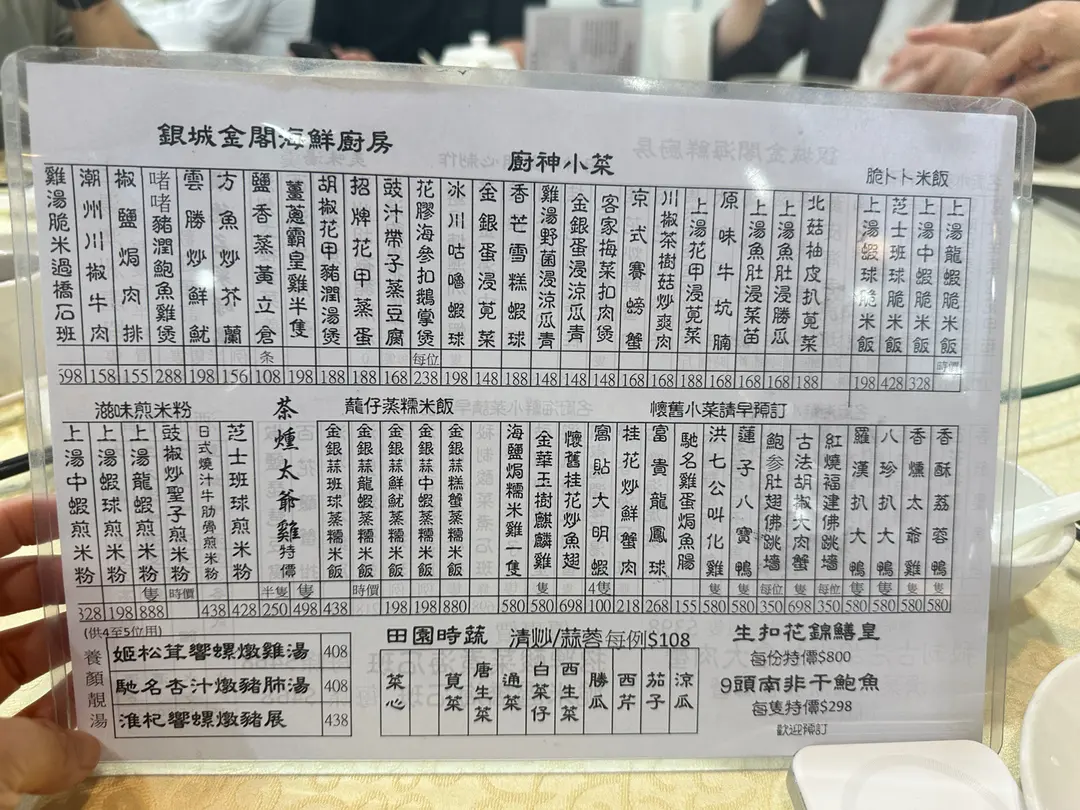 銀城金閣海鮮廚房
廚神小菜
脆卜卜米飯
上湯龍蝦球脆米飯 時價
上湯中蝦脆米飯 328
芝士班球脆米飯 428
上湯蝦球脆米飯 198
北菇抽皮扒莧菜 188
上湯魚肚浸勝瓜 168
上湯魚肚浸菜苗 168
原味牛坑腩 168
上湯花甲浸莧菜 188
川椒茶樹菇炒爽肉 168
京式賽螃蟹 168
客家梅菜扣肉煲 148
金銀蛋浸涼瓜青 148
雞湯野菌浸涼瓜青 148
香芒雪糕蝦球 188
金銀蛋浸莧菜 148
冰川咕嚕蝦球 198
花膠海參扣鵝掌煲 每位 238
豉汁帶子蒸豆腐 168
招牌花甲蒸蛋 188
胡椒花甲豬潤湯煲 188
薑蔥霸皇雞半隻 198
鹽香蒸黃立倉 条 108
方魚炒芥蘭 156
雲勝炒鮮魷 198
啫啫豬潤鮑魚雞煲 288
椒鹽焗肉排 155
潮州川椒牛肉 158
雞湯脆米過橋石班 598
懷舊小菜請早預訂
香酥荔蓉鴨 580
香燻太爺雞 隻 580
八珍扒大鴨 隻 580
羅漢扒大鴨 隻 580
紅燒福建佛跳墻 每位 350
古法胡椒大肉蟹 698
鮑參肚翅佛跳墻 每位 350
蓮子八寶鴨 隻 580
洪七公叫化雞 隻 580
馳名雞蛋焗魚腸 155
富貴龍鳳球 268
桂花炒鮮蟹肉 218
窩貼大明蝦 4隻 100
懷舊桂花炒魚翅 698
金華玉樹麒麟雞 隻 580
海鹽焗糯米雞一隻 580
蘢仔蒸糯米飯
金銀蒜糕蟹蒸糯米飯 880
金銀蒜中蝦蒸糯米飯 198
金銀蒜鮮魷蒸糯米飯 198
金銀蒜龍蝦蒸糯米飯 時價
金銀蒜班球蒸糯米飯 438
茶燻太爺雞特價
半隻 250
隻 498
滋味煎米粉
芝士班球煎米粉 428
日式燒汁牛肋骨煎米粉 438
豉椒炒聖子煎米粉 時價
上湯龍蝦煎米粉 隻 888
上湯蝦球煎米粉 198
上湯中蝦煎米粉 328
(供4至5位用)
養顏靚湯
姬松茸響螺燉雞湯 408
馳名杏汁燉豬肺湯 408
淮杞響螺燉豬展 438
田園時蔬 清炒/蒜蓉每例$108
涼瓜
茄子
西芹
勝瓜
西生菜
白菜仔
通菜
唐生菜
莧菜
菜心
生扣花錦鱔皇
每份特價$800
9頭南非干鮑魚
每隻特價$298
歡迎預訂